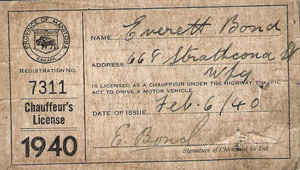 PROVINCE OF MANITOBA
CANADA
REGISTRATION NO.
7311
Chauffeur's
License
1940
NAME Everett Bond
ADDRESS 668 Strathcona St
Wpg
IS LICENSED AS A CHAUFFEUR UNDER THE HIGHWAY TRAFFIC
ACT TO DRIVE A MOTOR VEHICLE.
DATE OF ISSUE Feb. 6/40
E. Bond
Signature of Chauffeur in Ink